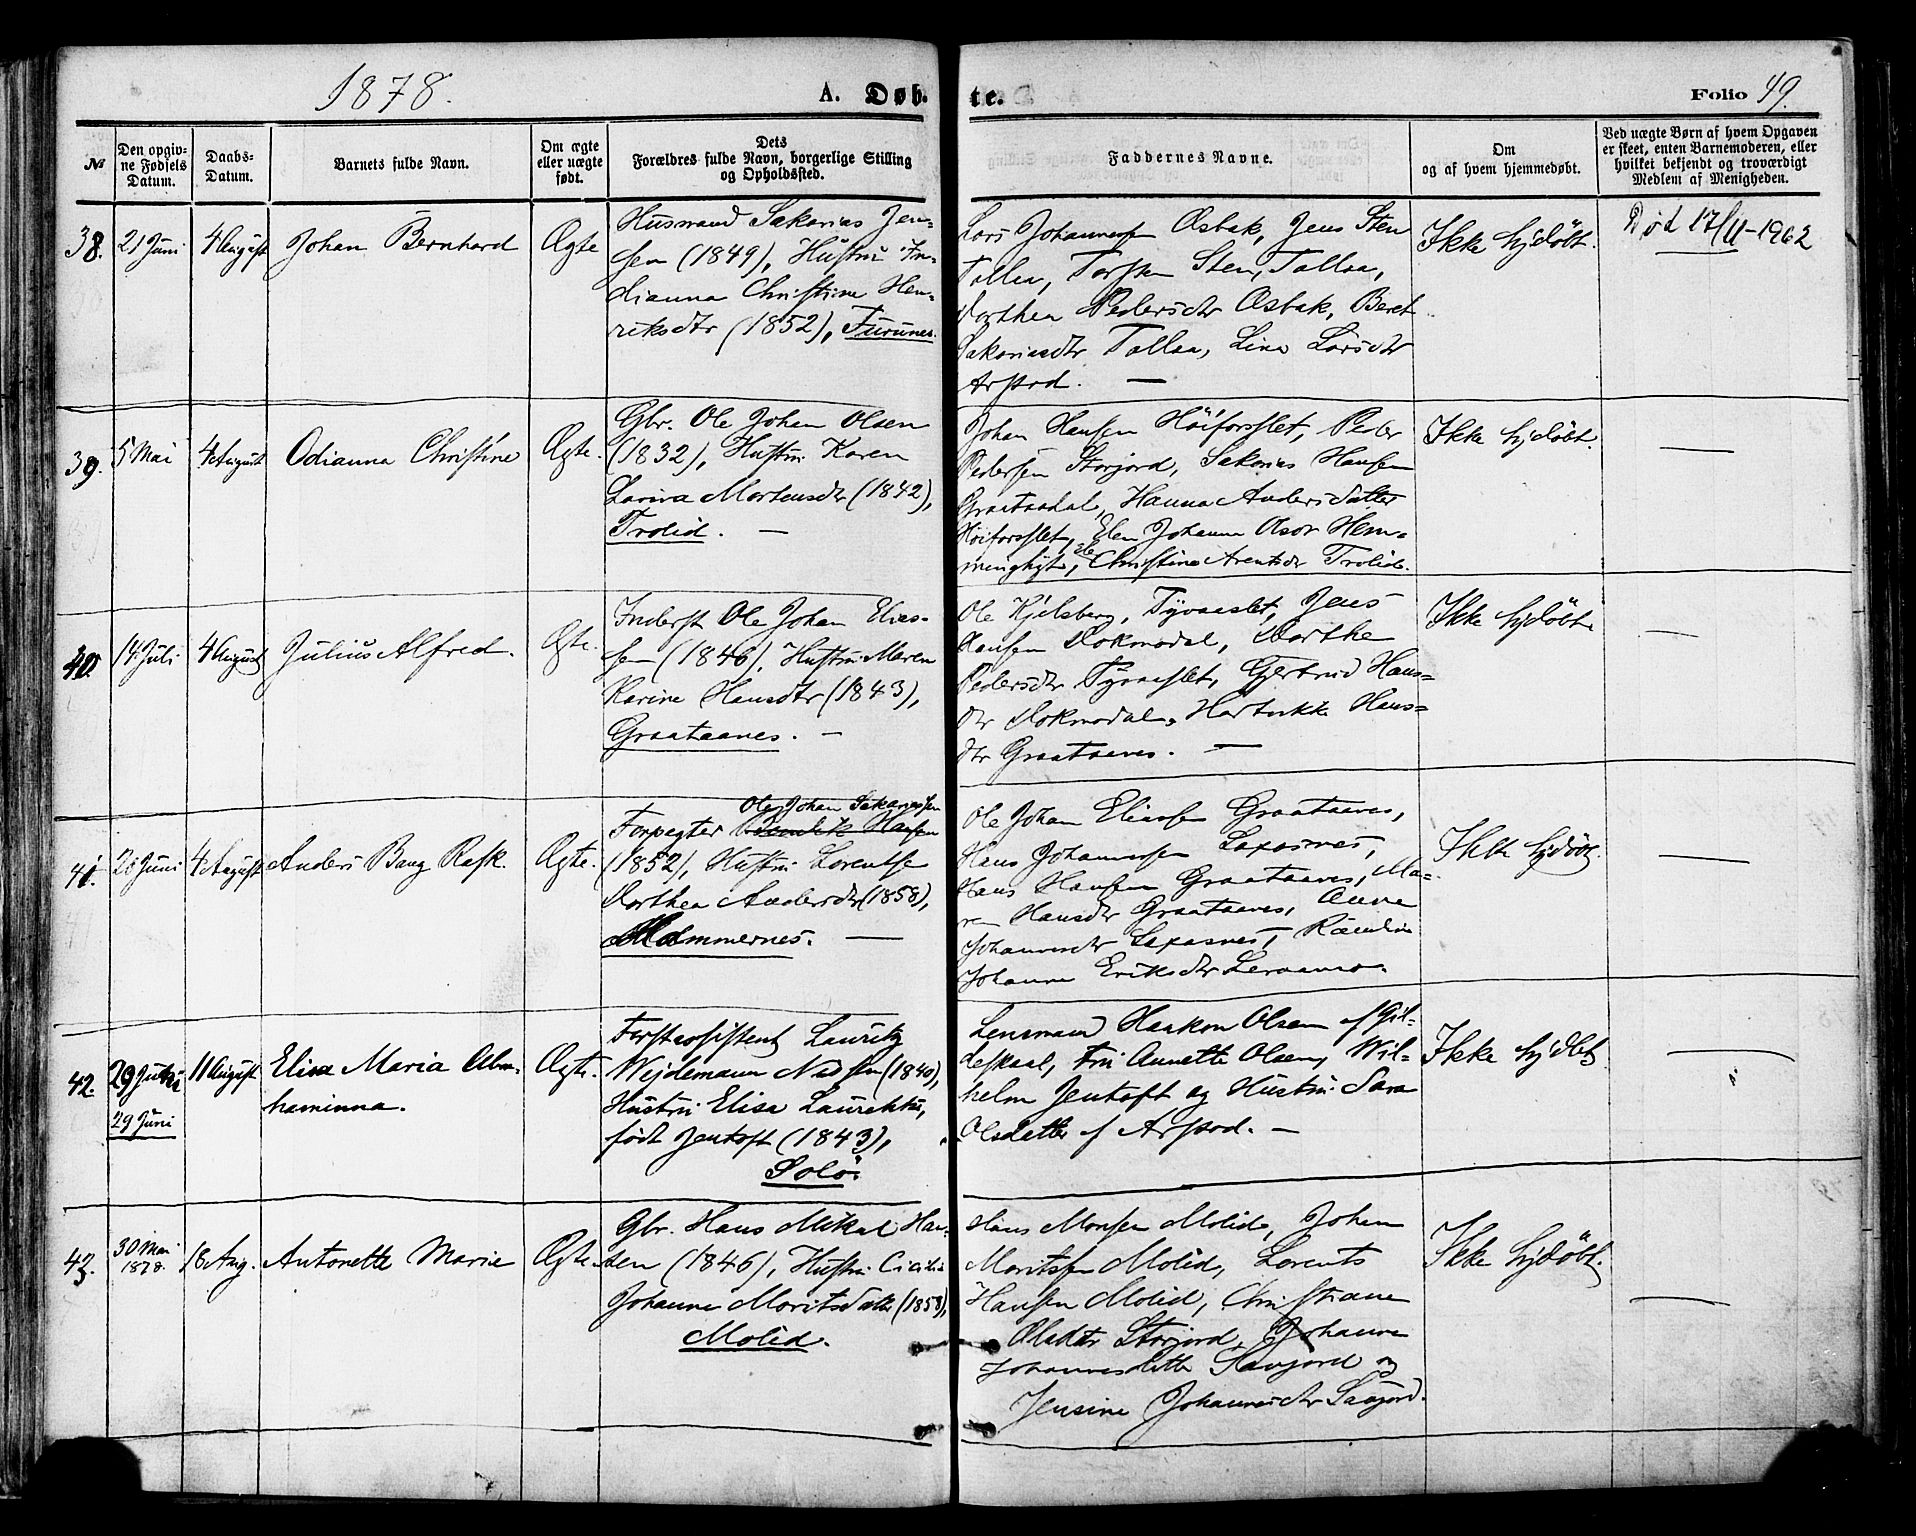 1878.
A. Døb-
te.
Folio 49.
№
Den opgiv-
ne Fødsels
Datum.
Daabs-
Datum.
Barnets fulde Navn.
Om ægte
eller uægte
født.
Dets
Forældres fulde Navn, borgerlige Stilling
og Opholdssted.
Faddernes Navne.
Om
og af hvem hjemmedøbt.
Ved uægte Børn af hvem Opgaven
er skeet, enten Barnemoderen, eller
hvilket bekjendt og troværdigt
Medlem af Menigheden.
38.
21 Juni
4 August
Johan Bernhard
Ægte
Husmand Sakarias Jen-
sen (1849), Hustru In-
dianna Christine Hen-
riksdtr (1852), Furunes.
Lars Johannesen Osbak, Jens Sten
Tollaa, Sten, Tollaa,
Dorthea Pedersdtr Osbak, Beret
Sakariasdtr Tollaa, Lina Larsdtr
Arstad. —
Ikke hjdöbt.
Død 17/11-1962
39.
5 Mai
4 August
Odianna Christine
Ægte.
Gbr. Ole Johan Olsen
(1832), Hustru Karen
Larina Mortensdtr (1842),
Trolid. —
Johan Hansen Höiforslet, Peder
Pedersen Storjord, Sakarias Hansen
Graataadal, Hanna Andersdatter
Höiforslet, Elen Johanna Olsdr Hem-
Christine Arentsdr Trolid.
Ikke hjdöbt.
—
40.
14 Juli
4 August
Julius Alfred.
Ægte.
Inderst Ole Johan Elias-
sen (1846), Hustru Maren
Karine Hansdtr (1843),
Graataanes. —
Ole Kjelsberg, Tyvaaslet, Jens
Hansen Dokmodal, Dorthe
Pedersdtr Tyvaaslet, Gjertrud Hans-
dtr Dokmodal, Hartvikke Hans-
dtr Graataanes. —
Ikke hjdöbt.
—
41.
4 August
Anders Bang Rask.
Ægte.
Ole Johan Sakariassen
Forpagter Hansen
(1852), Hustru Lorentse
Dorthea Andersdtr (1858),
—
Ole Johan Eliassen Graataanes,
Hans Johannessen Laxasnes,
Hans Hansen Graataanes, Ma-
ren Hansdtr Graataanes, Anne
Johannesdtr Laxasnes,
Johanne Eriksdtr
Ikke hjdöbt.
—
42.
29 Juni
29 Juni
11 August
Elisa Maria Abra-
haminna.
Ægte.
Forstassistent Lauritz
Wejdemann (1840),
Hustru Elisa
født Jentoft (1843),
Solö.
Lensmand Haakon Olsen af Gil-
deskaal, Fru Annette Olsen, Wil-
helm Jentoft og Hustru Sara
Olsdatter af Arstad. —
Ikke
—
43.
30 Mai
1878.
18 Aug.
Antonette Marie
Ægte.
Gbr. Hans Mikal Han-
sen (1846), Hustru Cicilie
Johanne Moritsdatter (1858),
Molid.
Hans Monsen Molid, Johan
Moritsen Molid, Lorents
Hansen Molid, Christiane
Olsdtr Storjord, Johanne
Johannesdatter Saujord og
Jensine Johannesdtr Saujord.
Ikke hjdöbt.
—